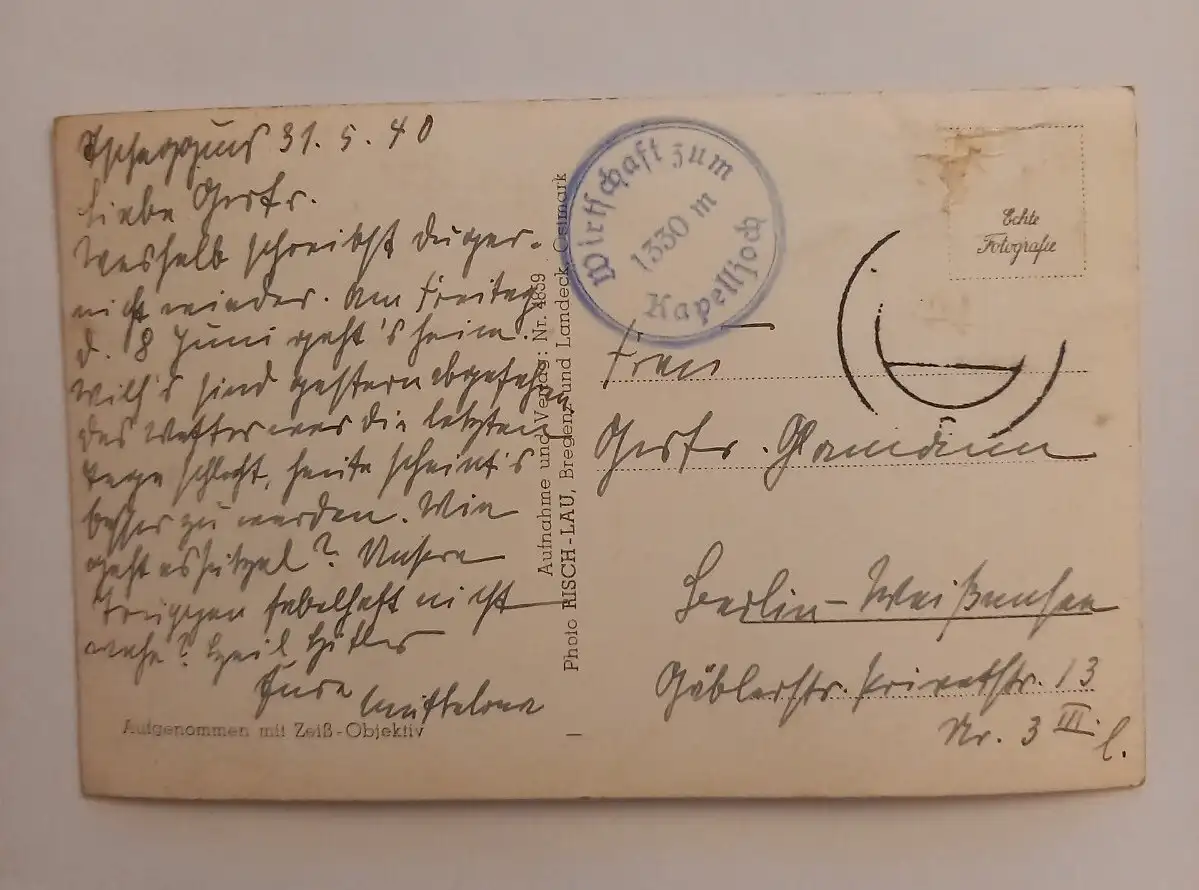 Tschagguns 31.5.40
Liebe
Weshalb schreibst du gar
nicht wieder. Am Freitag
d. 8 Juni geht's heim.
sind gestern abgefahren,
das Wetter war die letzten
Tage schlecht, heute scheint's
besser zu werden. Wie
geht es ? Unsere
Truppen fabelhaft nicht
wahr? Heil Hitler
Eure
Aufgenommen mit Zeiß-Objektiv
Aufnahme und Verlag: Nr. 4859
Photo RISCH-LAU, Bregenz und Landeck, Ostmark
Wirtschaft zum
1330 m
Kapelljoch
Echte
Fotografie
Frau
Glamann
Berlin-Weißensee
Gäblerstr. Privatstr. 13
Nr. 3 III. l.